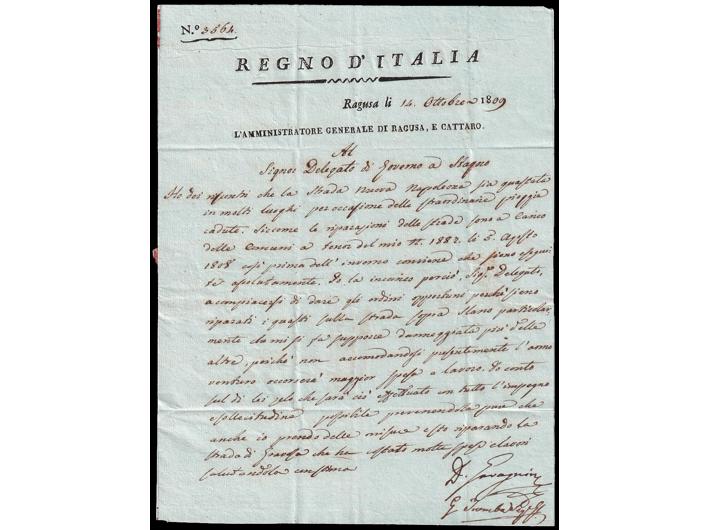 N.º 3564.
REGNO D'ITALIA
Ragusa li 14. Ottobre 1809
L'AMMINISTRATORE GENERALE DI RAGUSA, E CATTARO.
Al
Signor Delegato di Governo a Stagno
Ho dei riscontri che la Strada Nuova Napoleone sia guastata
in molti luoghi per occasione delle straordinarie pioggia
cadute. Siccome le riparazioni della strada sono a Carico
delle Comuni a tenor del mio 1882. li 3. Agosto
1808 così prima dell'inverno conviene che sieno esegui
te assolutamente. Io la incarico perciò Sig.r Delegato,
a compiacersi di dare gli ordini opportuni perchè sieno
riparati i guasti sulla strada sopra Slano particolar
mente che mi si fa supporre danneggiata più delle
altre, poichè non accomodandosi presentemente l'anno
venturo occorrerà maggior spesa e lavoro. Io conto
sul di lei zelo che sarà ciò effettuato con tutto l'impegno
e sollecitudine possibile prevenendola pure che
anche io prendo delle misure e sto riparando la
strada di Gravosa che ha costato molte spese e lavori
salutandola con stima
D. Garagnin
G.